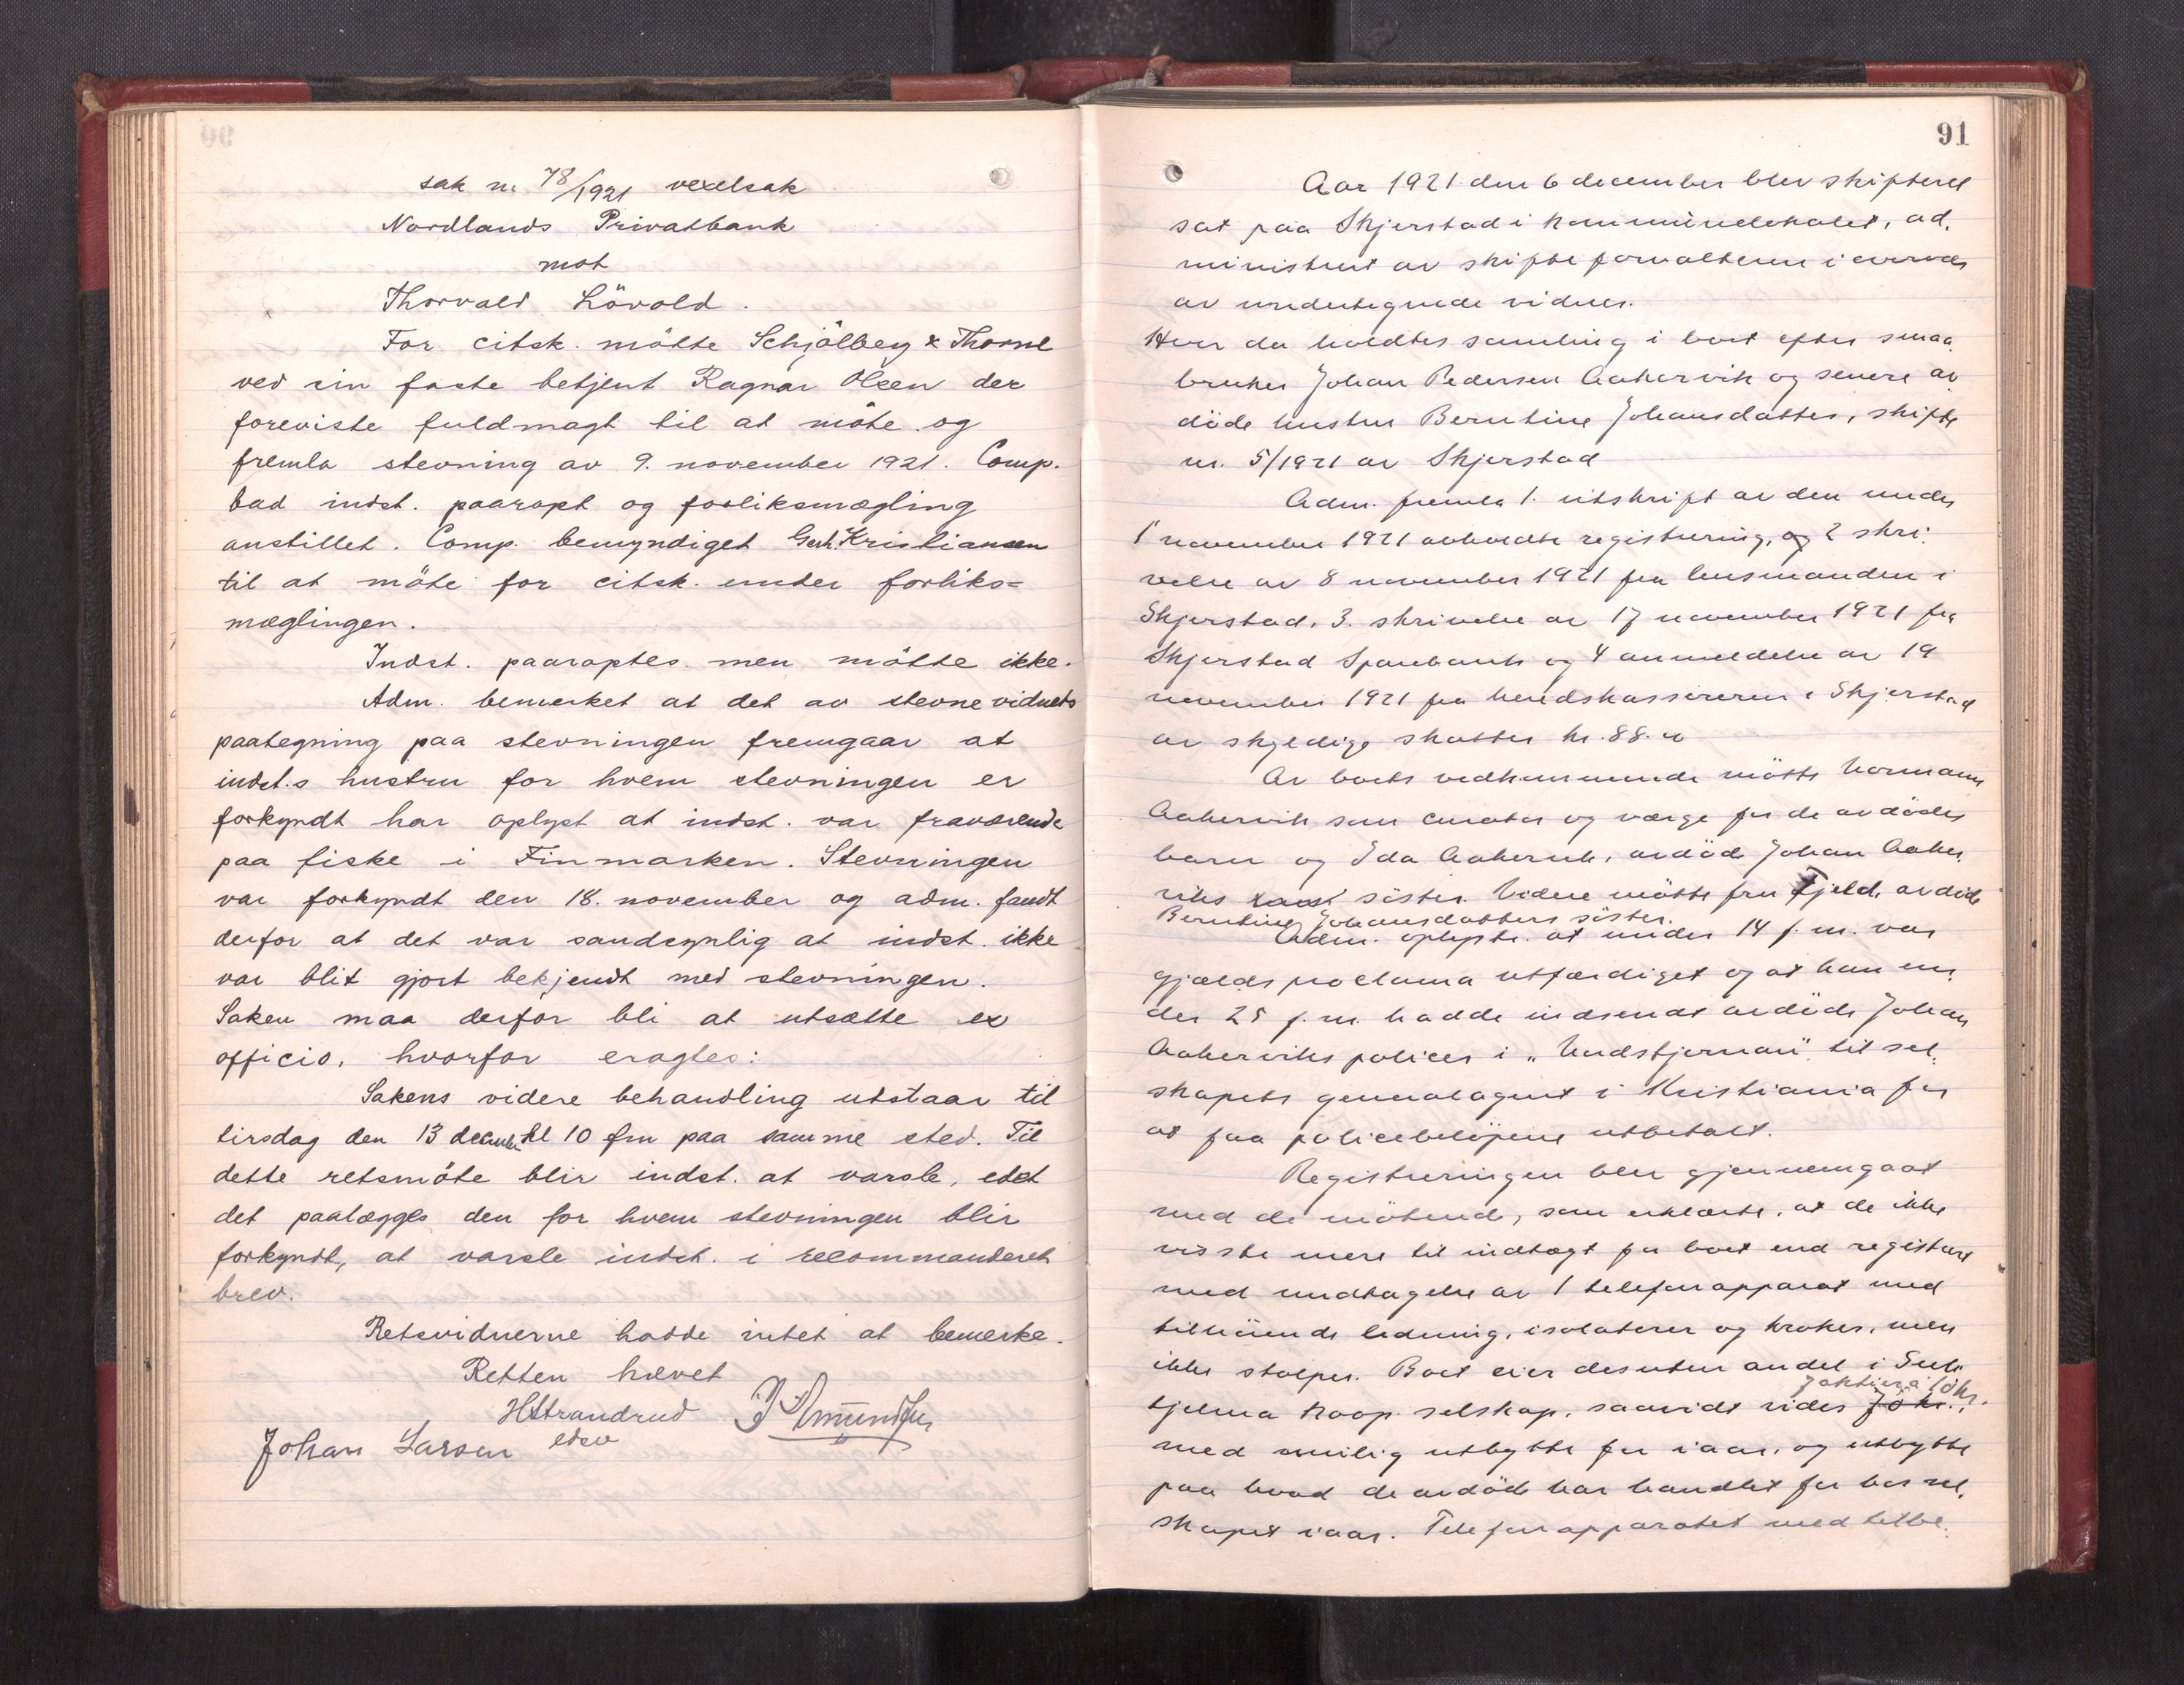 sak nr. 78/1921 vexelsak
Nordlands Privatbank
mot
Thorvald Lövold.
For citsk. mötte Schjölberg & Thorne
ved sin faste betjent Ragnar Olsen der
foreviste fuldmagt til at möte og
fremla stevning av 9. november 1921. Comp.
bad indst. paaropt og forliksmægling
anstillet. Comp. bemyndiget Gerh. Kristiansen
til at möte for citsk. under forliks=
mæglingen.
Indst. paaroptes men mötte ikke.
Adm. bemerket at det av stevnevidnets
paategning paa stevningen fremgaar at
indst.s hustru for hvem stevningen er
forkyndt har oplyst at indst. var fraværende
paa fiske i Finmarken. Stevningen
var forkyndt den 18. november og adm. fandt
derfor at det var sandsynlig at indst. ikke
var blit gjort bekjendt med stevningen.
Saken maa derfor bli at utsætte ex
officio, hvorfor eragtes:
Sakens videre behandling utstaar til
tirsdag den 13 decembr. kl 10 fm paa samme sted. Til
dette retsmöte blir indst. at varsle, idet
det paalægges den for hvem stevningen blir
forkyndt, at varsle indst. i recommanderet
brev.
Retsvidnerne hadde intet at bemerke.
Retten hævet
HStrandrud
edsv
Johan Larsen
91
Aar 1921 den 6 december blev skifteret
sat paa Skjerstad i kommunelokalet, ad.
ministrert av skifteforvalteren i overvær
av undertegnede vidner.
Hvor da holdtes samling i boet efter smaa.
bruker Johan Pedersen Aakervik og senere av
döde hustru Berntine Johansdatter, skifte
nr. 5/1921 av Skjerstad
Adm. fremla 1. utskrift av den under
1 november 1921 avholdte registrering, og 2 skri.
velse av 8 november 1921 fra lensmanden i
Skjerstad. 3. skrivelse av 17 november 1921 fra
Skjerstad Sparebank og 4 anmeldelse av 19
november 1921 fra herredskassereren i Skjerstad
av skyldige skatter kr. 88.
Av boets vedkommende mötte Normann
Aakervik som curator og værge for de avdödes
barn og Ida Aakervik, avdöde Johan Aaker.
viks söster. Videre mötte fru Fjeld, avdöde
Berntine Johansdatters söster.
Adm. oplyste at under 14 f. m. var
gjældsproclama utfærdiget og at han un.
der 25 f. m. hadde indsendt avdöde Johan
Aakerviks polices i "Nordstjernan" til sel.
skapets generalagent i Kristiania for
at faa policebelöpene utbetalt.
Registreringen blev gjennemgaat
med de mötende, som erklærte, at de ikke
visste mere til indtægt for boet end registrert
med undtagelse av 1 telefonapparat med
tilhörende ledning, isolatorer og kroker, men
ikke stolper. Boet eier desuten andel i Suli
tjelma Koop. selskap, saavidt vides
med mulig utbytte for iaar, og utbytte
paa hvad de avdöde har handlet for hos sel.
skapet iaar. Telefonapparatet med tilbe.